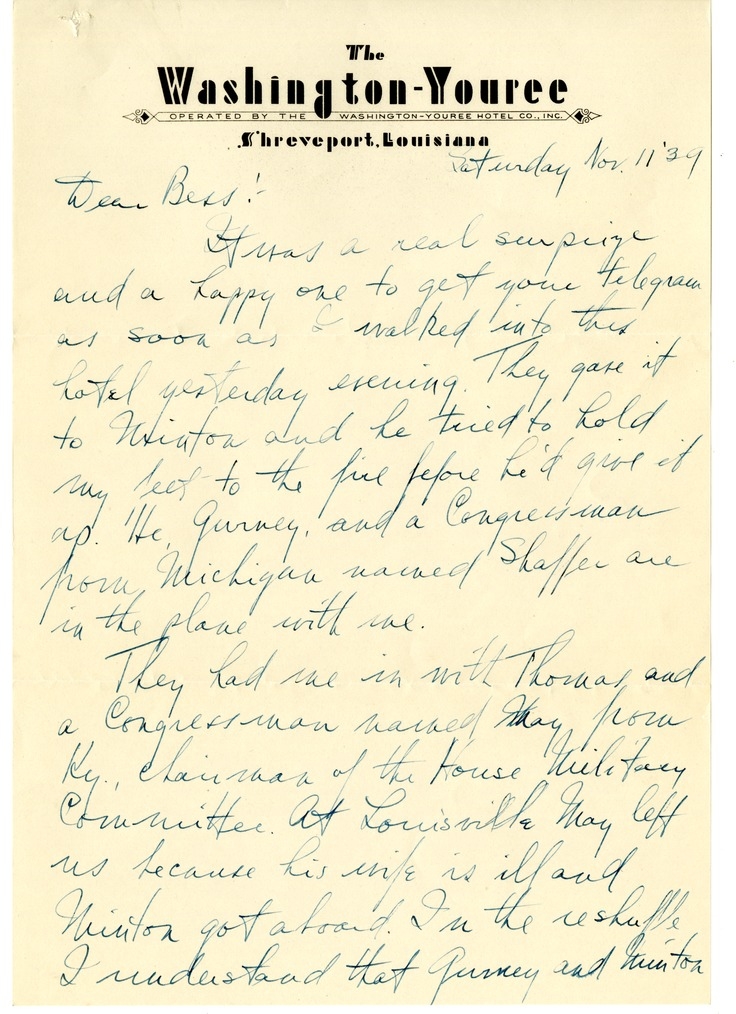 The
Washington-Youree
OPERATED BY THE WASHINGTON-YOUREE HOTEL CO., INC.
Shreveport, Louisiana
Saturday Nov. 11 '39
Dear Bess:-
It was a real surprize
and a happy one to get your telegram
as soon as I walked into this
hotel yesterday evening. They gave it
to Minton and he tried to hold
my feet to the fire before he'd give it
up. He, Gurney, and a Congressman
from Michigan named Shaffer are
in the plane with me.
They had me in with Thomas and
a Congressman named May from
Ky., chairman of the House Military
Committee. At Louisville May left
us because his wife is ill and
Minton got aboard. In the reshuffle
I understand that Gurney and Minton